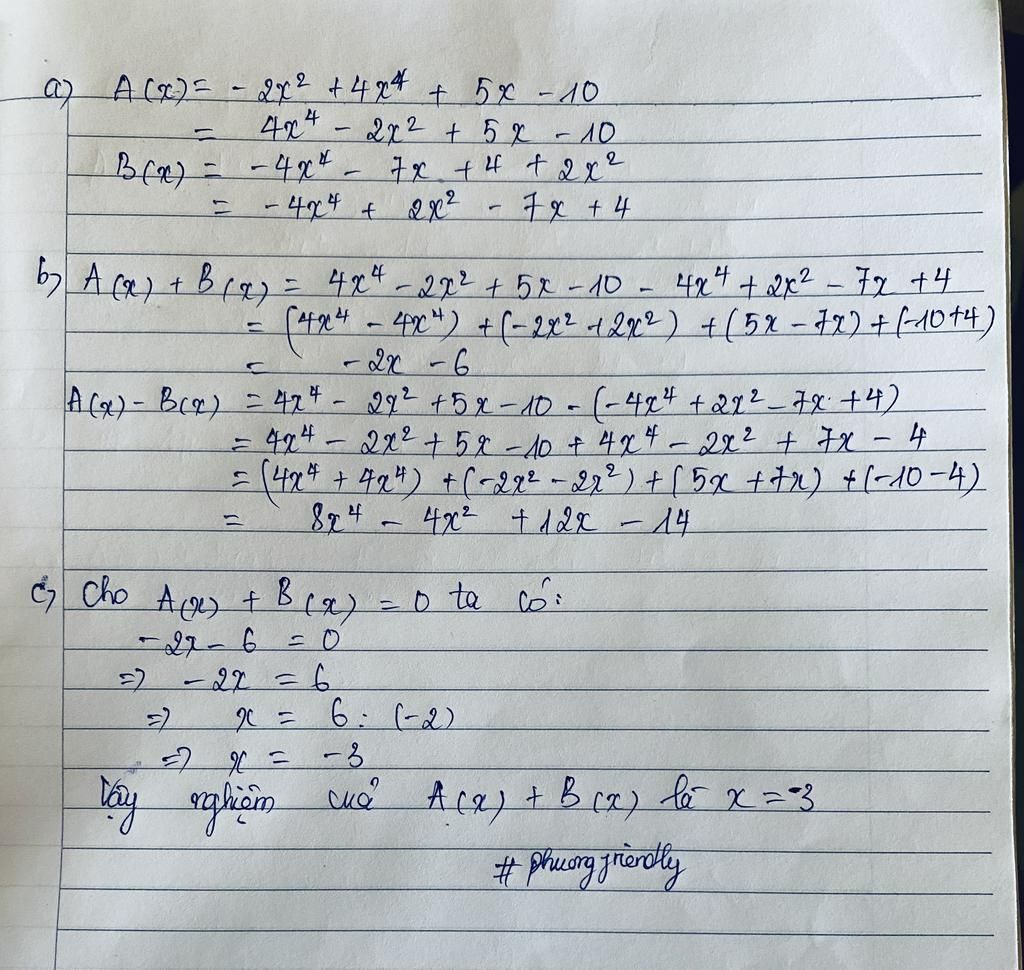 a) A(x) = - 2x² + 4x⁴ + 5x - 10
= 4x⁴ - 2x² + 5x - 10
B(x) = - 4x⁴ - 7x + 4 + 2x²
= - 4x⁴ + 2x² - 7x + 4
b) A(x) + B(x) = 4x⁴ - 2x² + 5x - 10 - 4x⁴ + 2x² - 7x + 4
= (4x⁴ - 4x⁴) + (-2x² + 2x²) + (5x - 7x) + (-10+4)
= - 2x - 6
A(x) - B(x) = 4x⁴ - 2x² + 5x - 10 - (-4x⁴ + 2x² - 7x + 4)
= 4x⁴ - 2x² + 5x - 10 + 4x⁴ - 2x² + 7x - 4
= (4x⁴ + 4x⁴) + (-2x² - 2x²) + (5x + 7x) + (-10 - 4)
= 8x⁴ - 4x² + 12x - 14
c) Cho A(x) + B(x) = 0 ta có:
- 2x - 6 = 0
=> - 2x = 6
=> x = 6 : (-2)
=> x = - 3
Vậy nghiệm cuả A(x) + B(x) là x = -3
# phuongfriendly